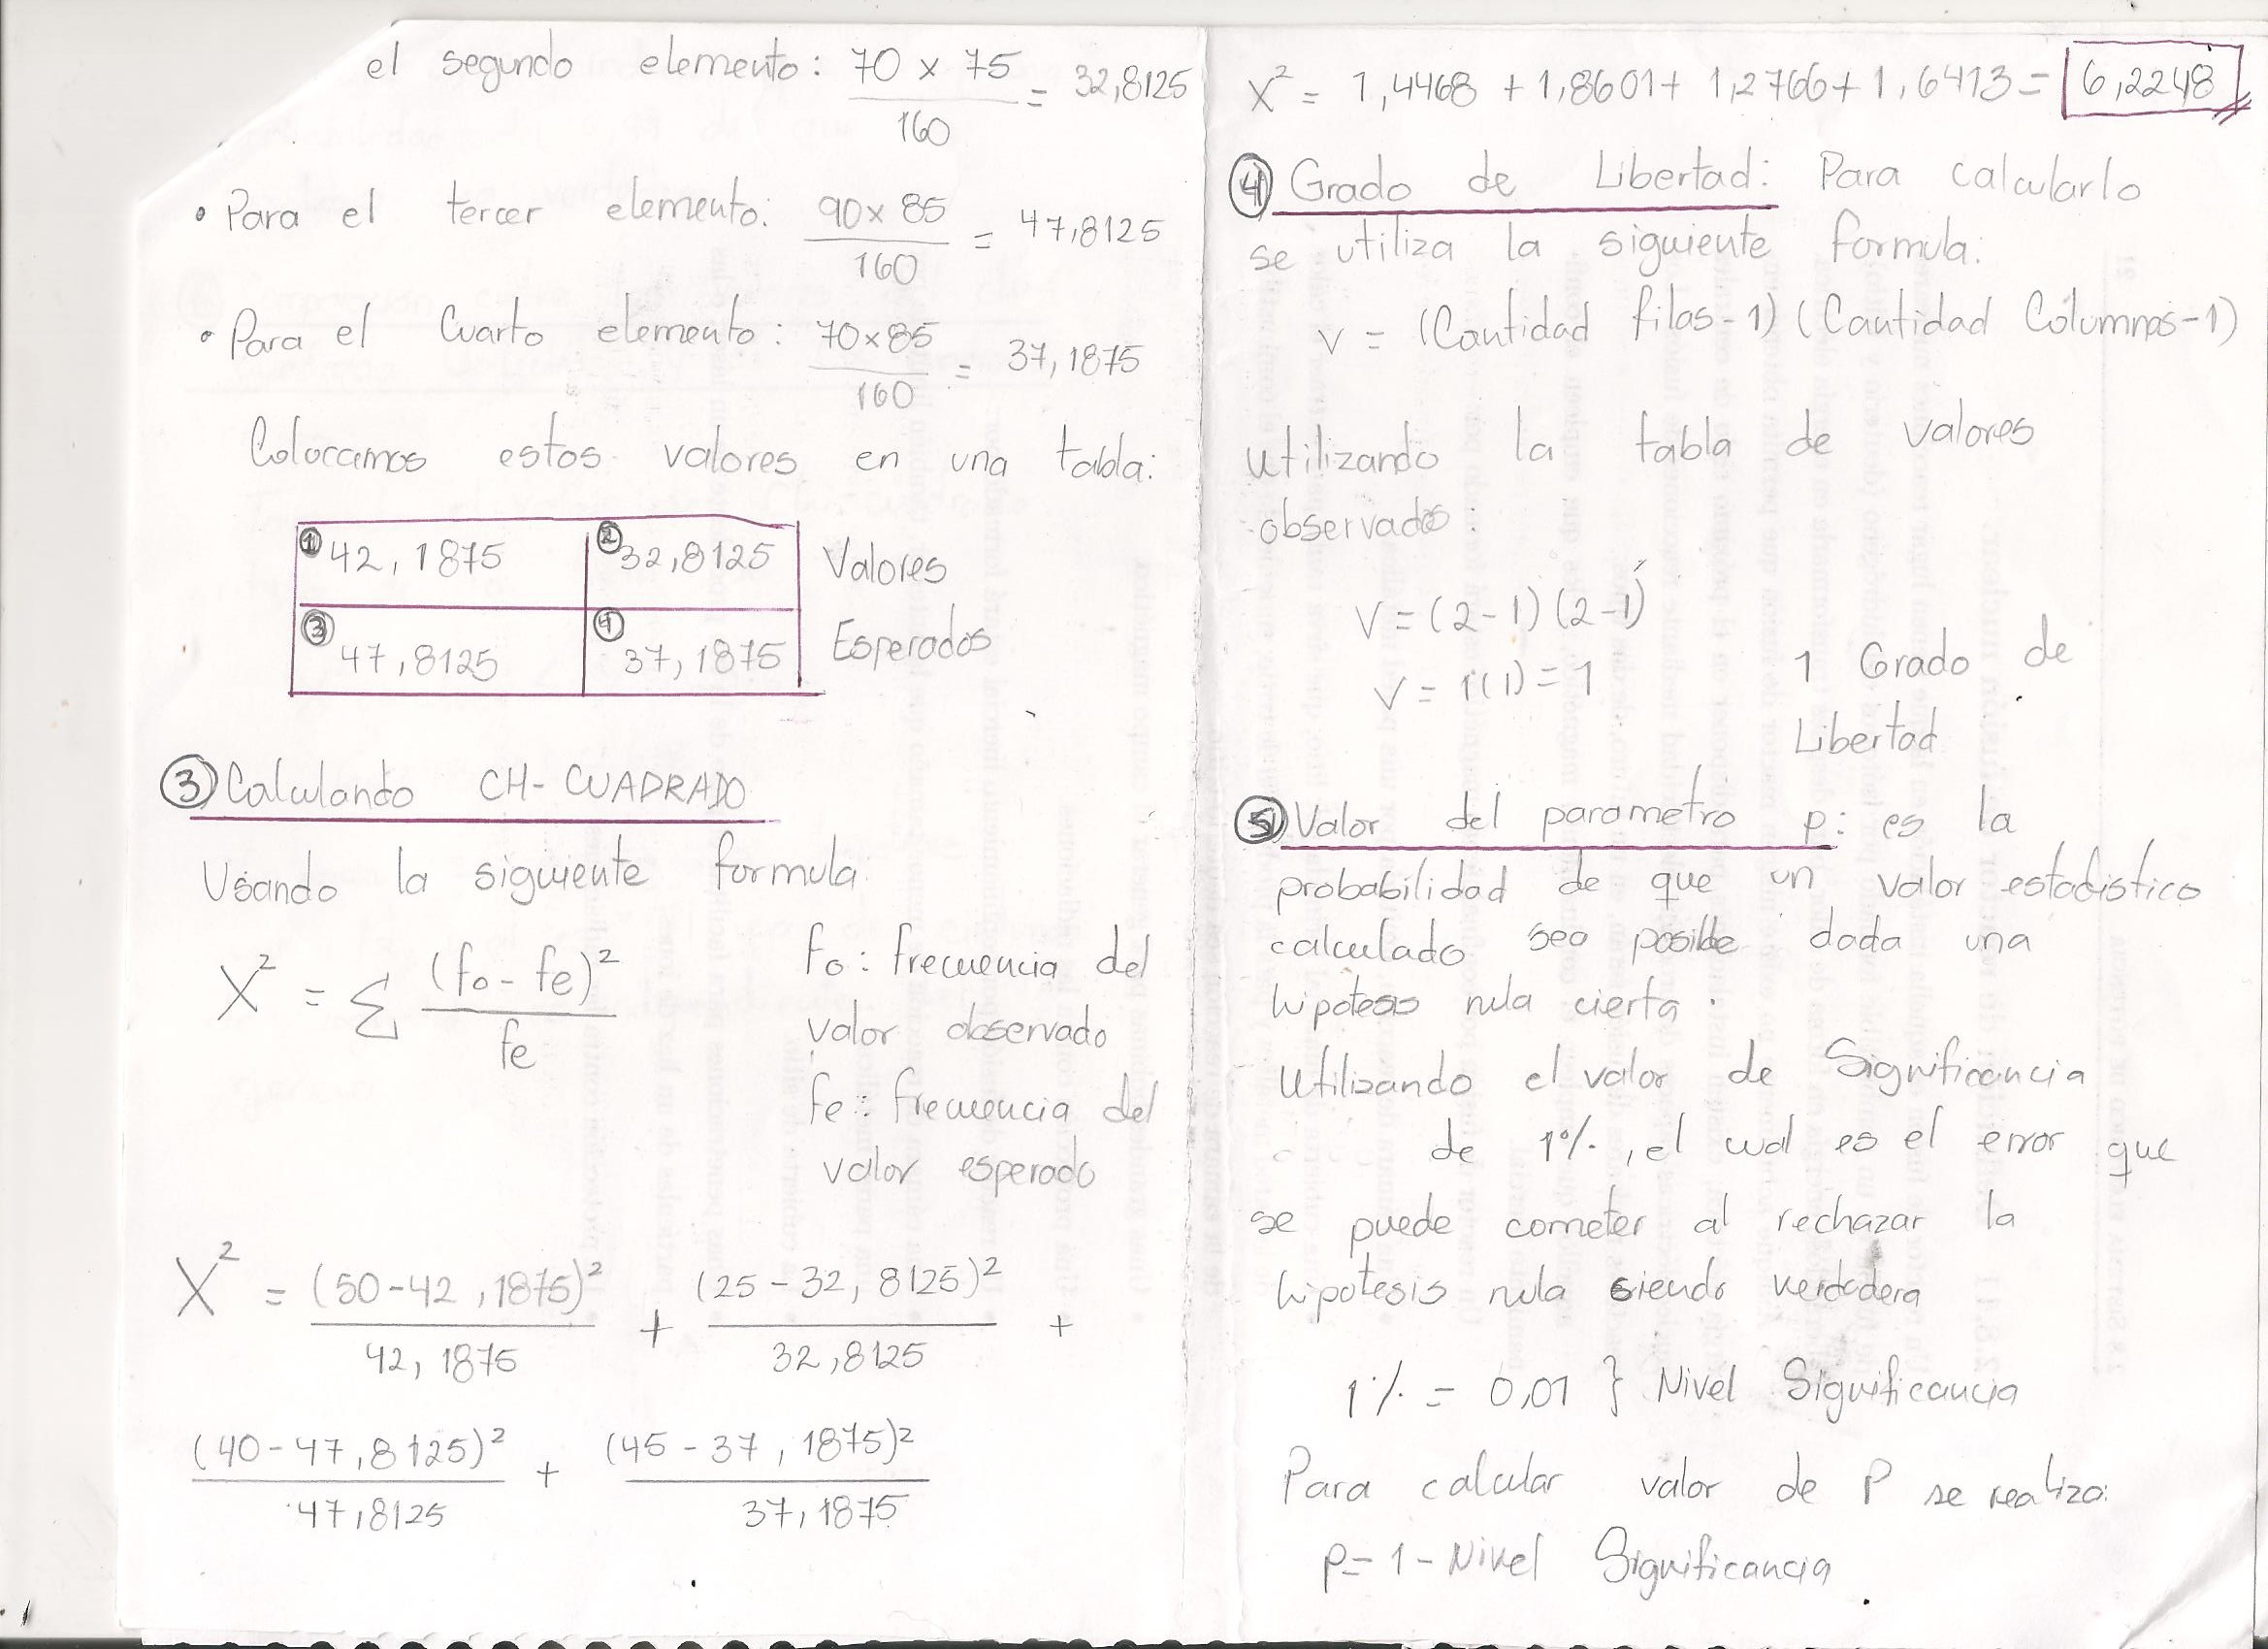 el segundo elemento: 70 x 75 / 160 = 32,8125
• Para el tercer elemento: 90 x 85 / 160 = 47,8125
• Para el Cuarto elemento: 70 x 85 / 160 = 37,1875
Colocamos estos valores en una tabla:
① 42,1875 ② 32,8125 Valores
③ 47,8125 ④ 37,1875 Esperados
③ Calculando CH-CUADRADO
Usando la siguiente formula
X² = Σ (fo - fe)² / fe
Fo: frecuencia del
valor observado
fe: frecuencia del
valor esperado
X² = (50-42,1875)² / 42,1875 + (25-32,8125)² / 32,8125 +
(40-47,8125)² / 47,8125 + (45-37,1875)² / 37,1875
X² = 1,4468 + 1,8601 + 1,2766 + 1,6413 = 6,2248
④ Grado de Libertad: Para calcularlo
se utiliza la siguiente formula:
v = (Cantidad filas-1) (Cantidad Columnas-1)
utilizando la tabla de valores
observados:
V = (2-1) (2-1)
V = 1(1) = 1 1 Grado de
Libertad
⑤ Valor del parametro p: es la
probabilidad de que un valor estadistico
calculado sea posible dada una
hipotesis nula cierta.
Utilizando el valor de Significancia
de 1%, el cual es el error que
se puede cometer al rechazar la
hipotesis nula siendo verdadera
1% = 0,01 } Nivel Significancia
Para calcular valor de P se realiza:
p = 1 - Nivel Significancia